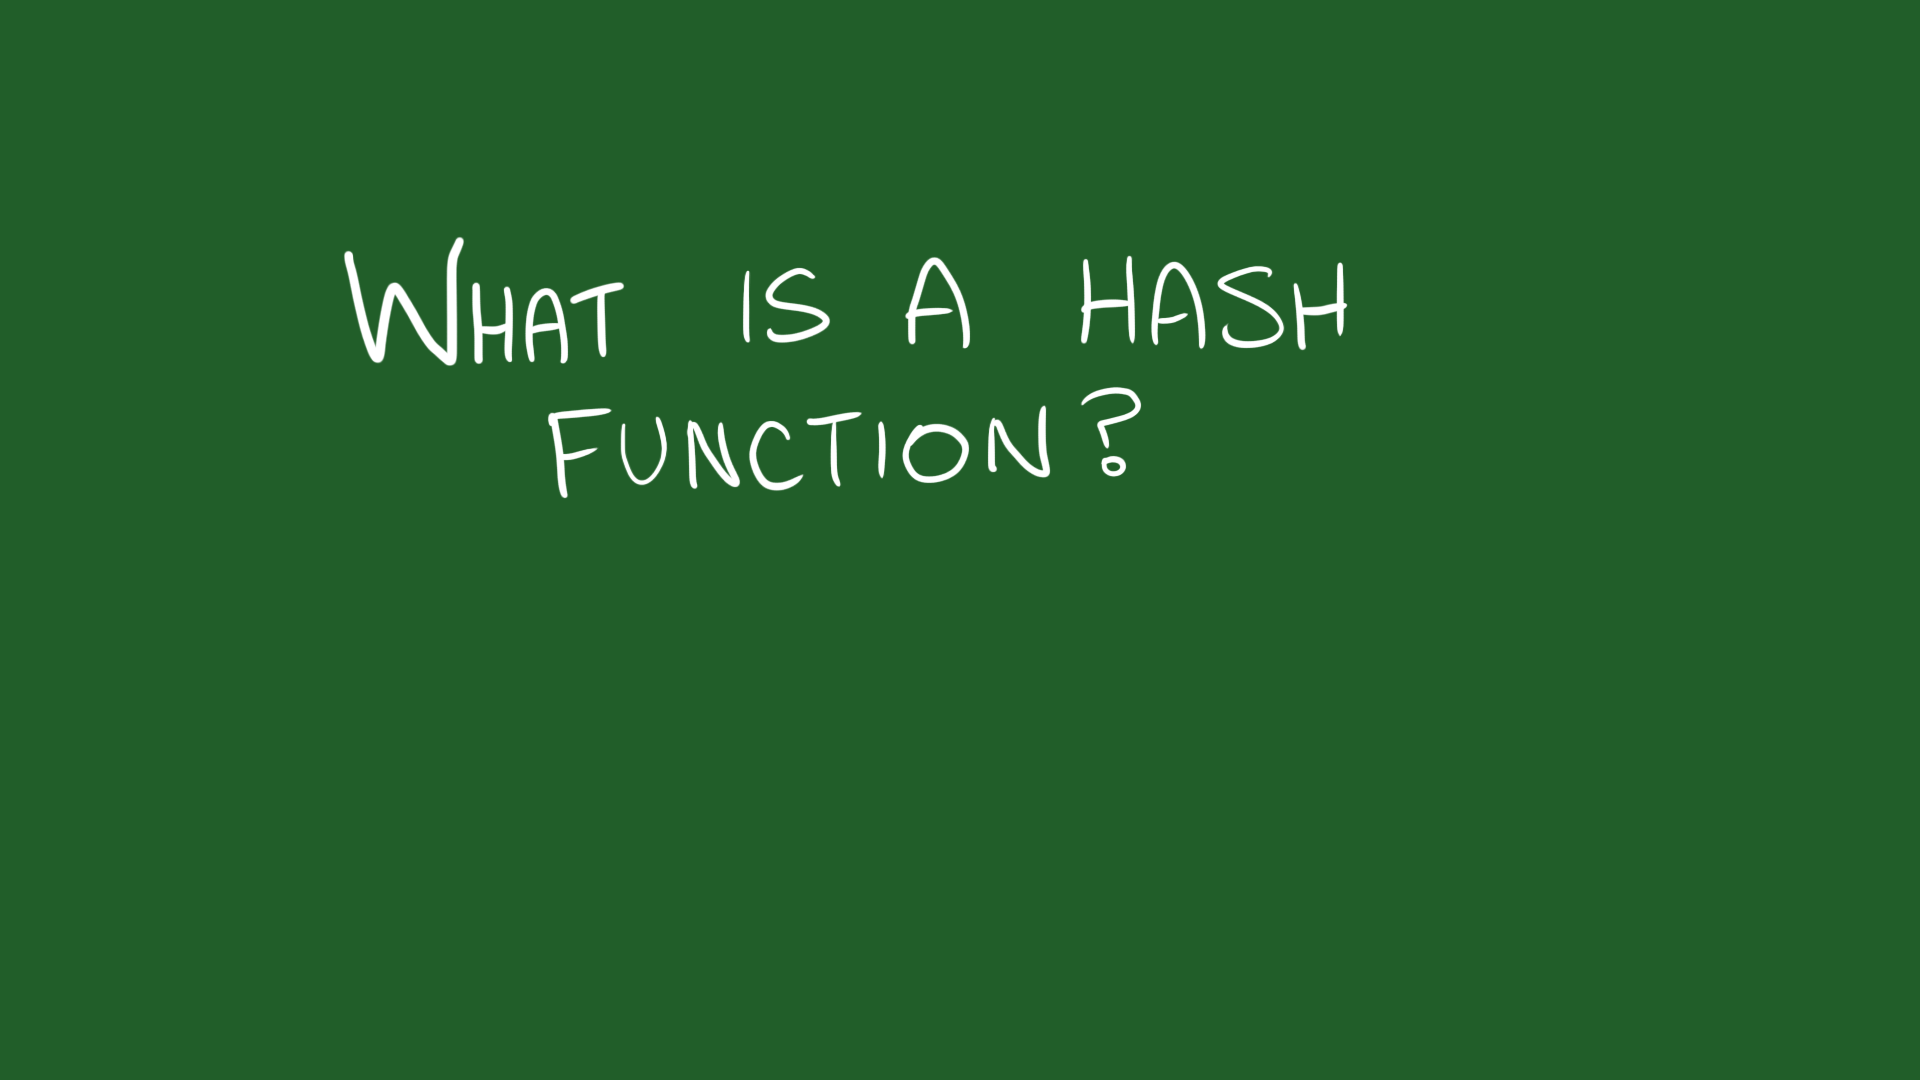 WHAT IS A HASH
FUNCTION?